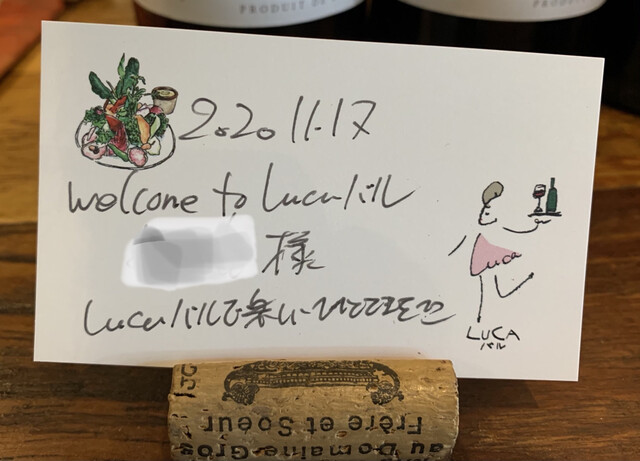 PRODUIT DE
2020 11.17
welcome to Lucaバル
様
Lucaバルで楽しいひとときを!!
Luca
LUCA
バル
Frère et Soeur
au Domaine Gros